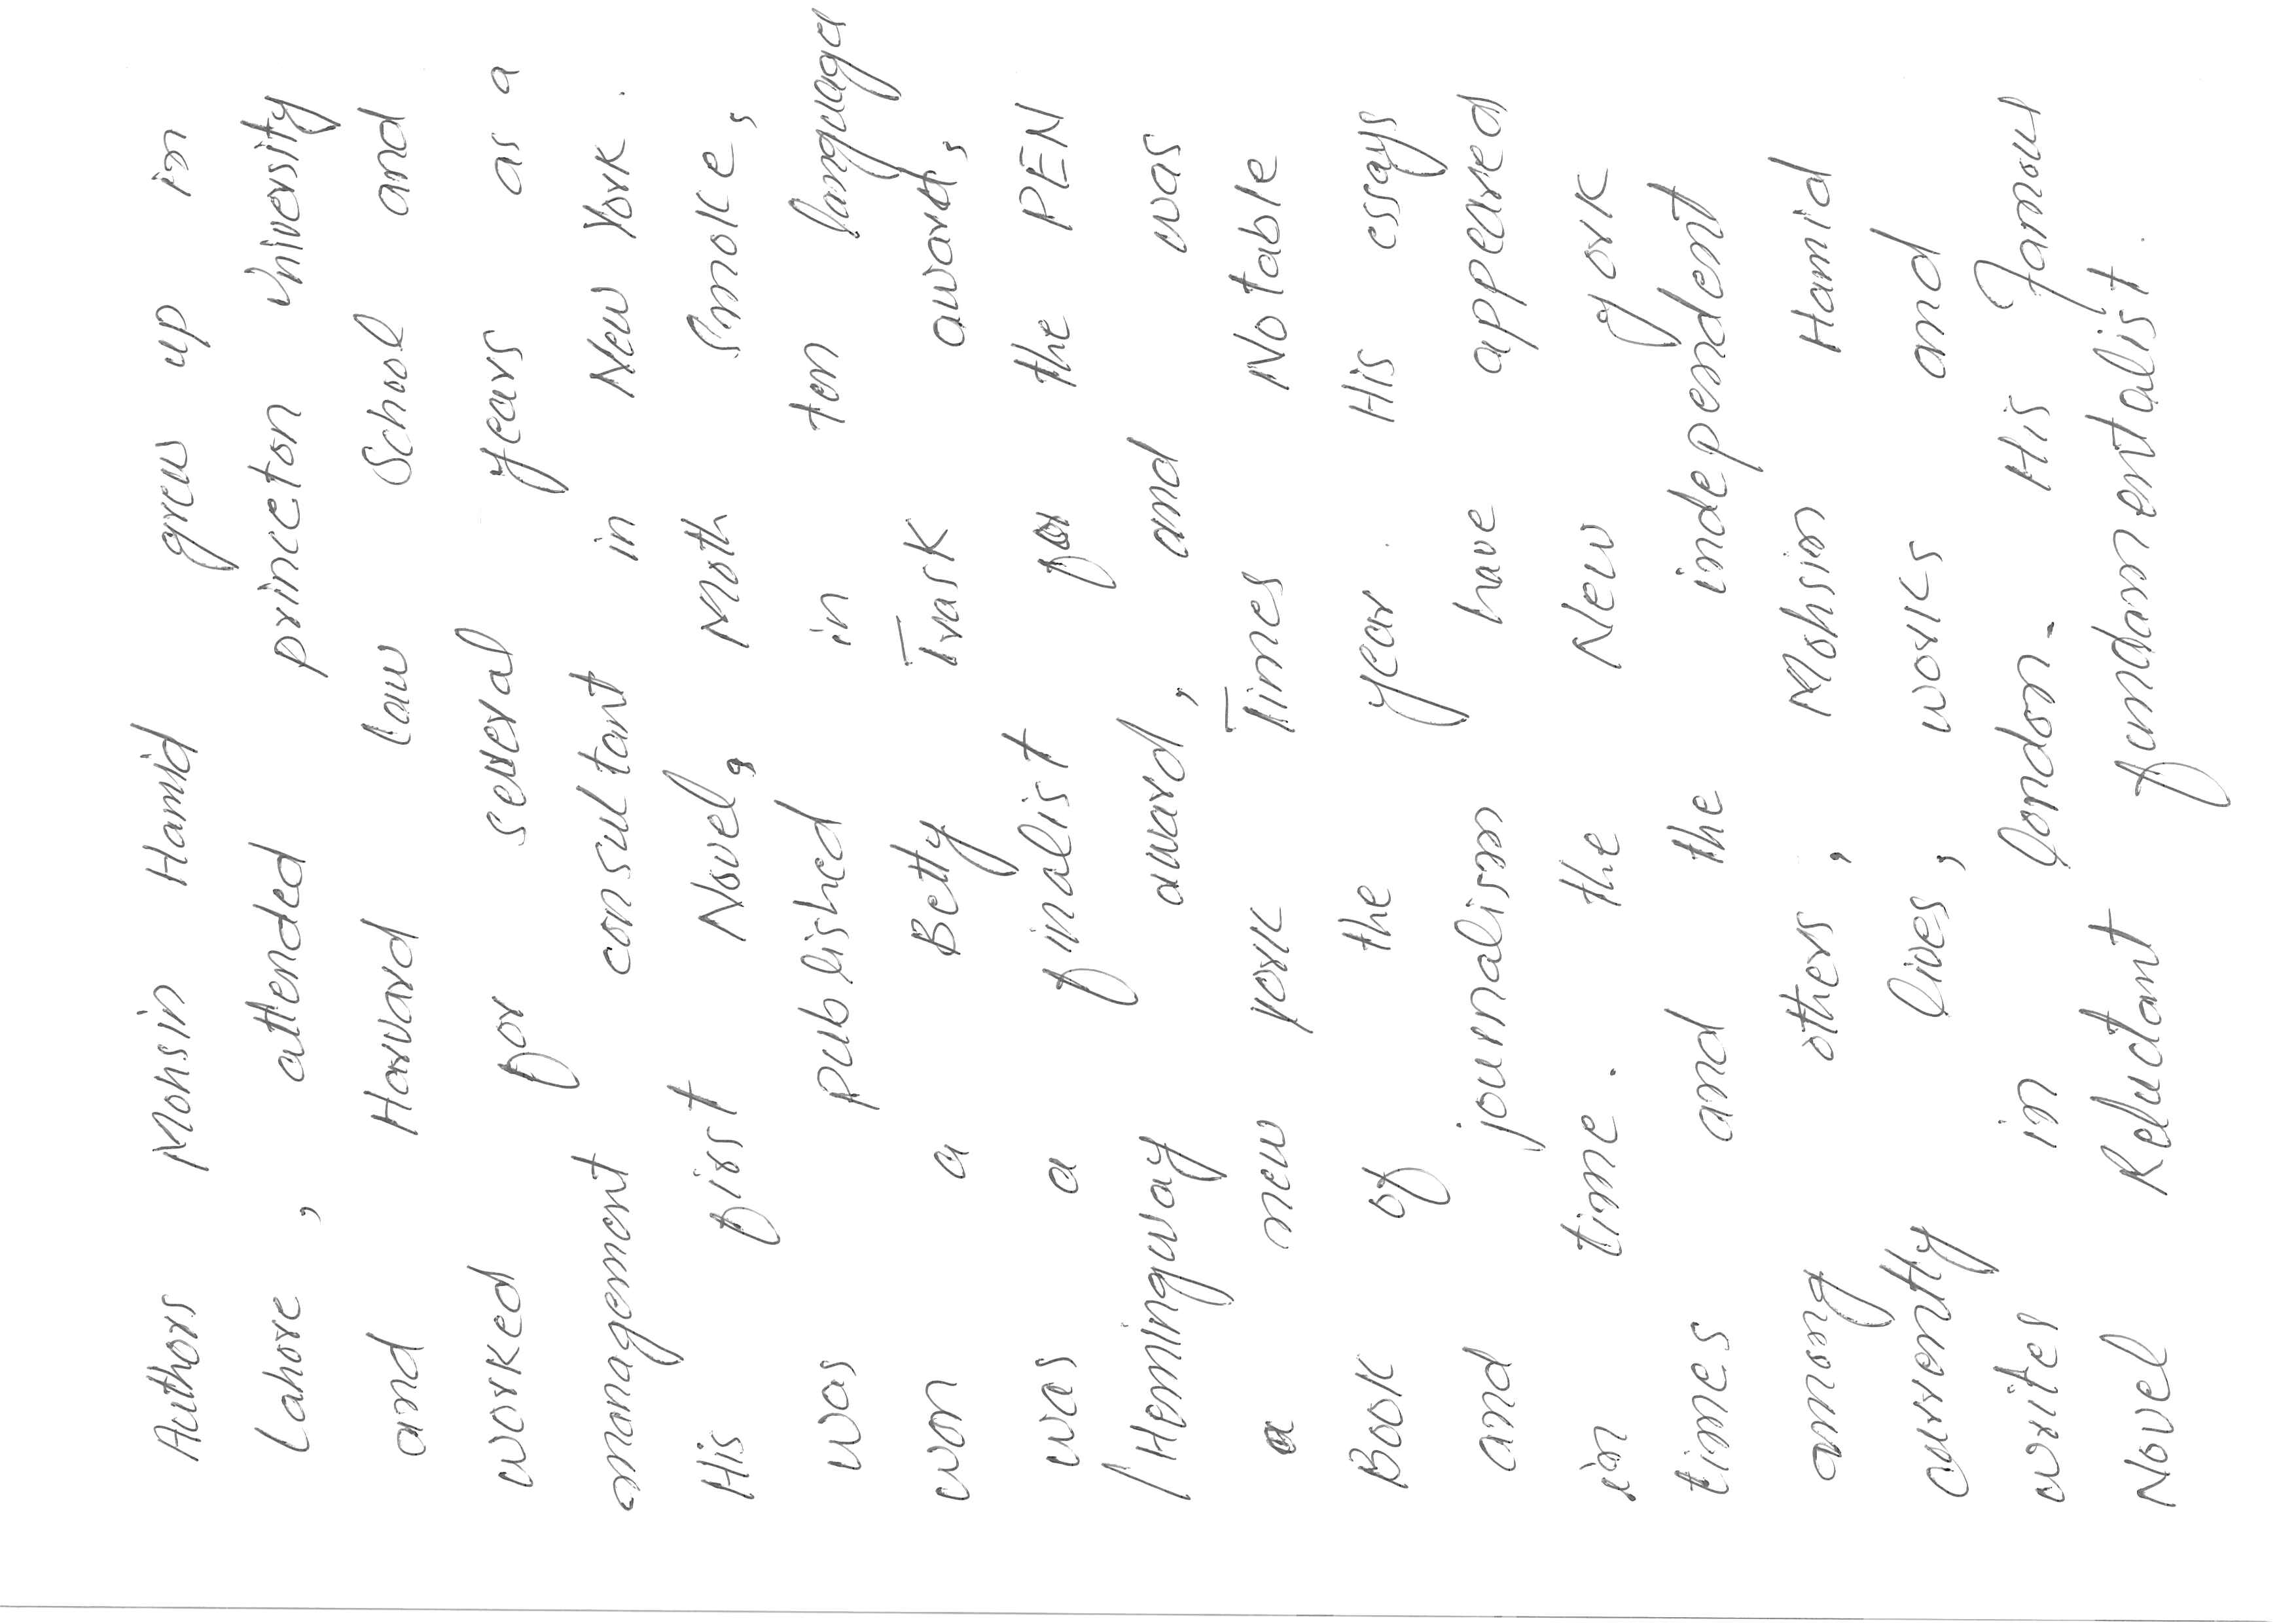 Authors Mohsin Hamid grew up in
Lahore , attended princeton University
and Harvard law School and
worked for several years as a
management consultant in New York .
His first Novel, Moth Smoke,
was published in ten languages
won a Betty Trask award,
was a finalist for the PEN
/Hemingway award, and was
a new york Times Notable
Book of the year . His essays
and journalism have appeared
in time . the New york
times and the independent
among others , Mohsin Hamid
currently lives, works and
writes in london. His Famous
Novel Reluctant fundamentalist .